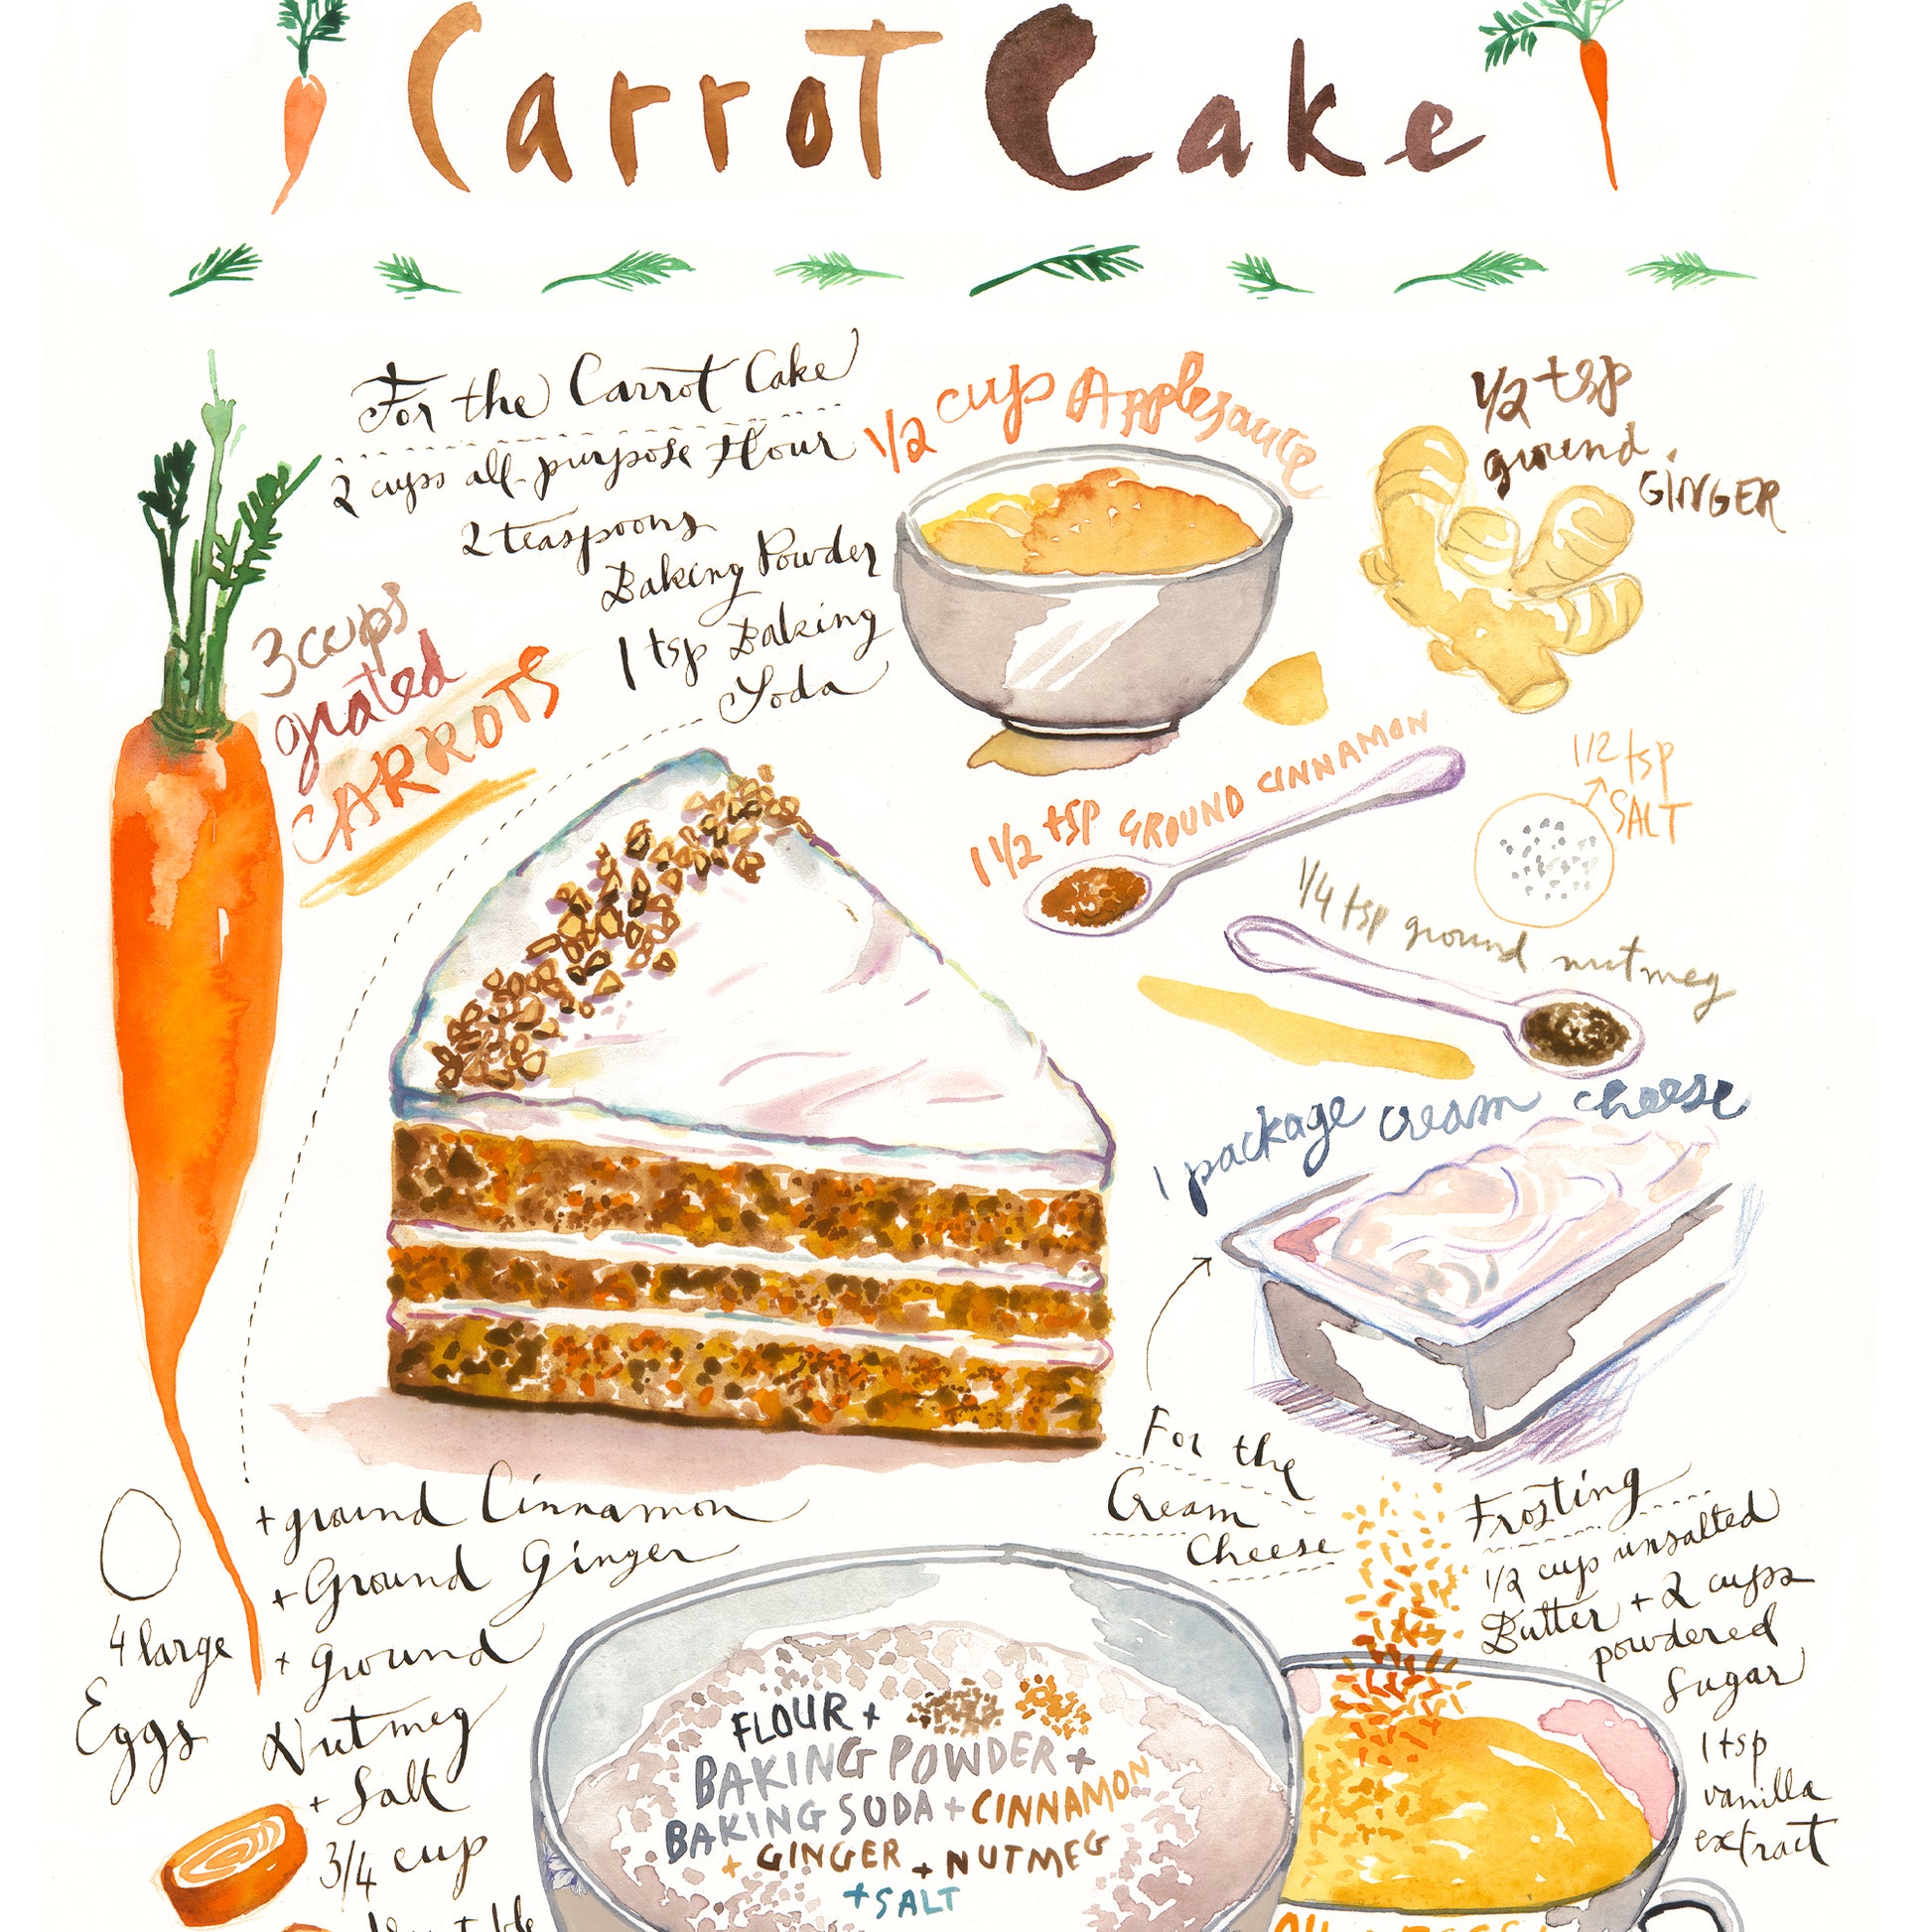 Carrot Cake
For the Carrot Cake
2 cups all-purpose Flour
2 teaspoons
Baking Powder
1 tsp Baking
Soda
3 cups
grated
CARROTS
1/2 cup Applesauce
1/2 tsp
ground
GINGER
1 1/2 tsp GROUND CINNAMON
1/2 tsp
SALT
1/4 tsp ground nutmeg
1 package cream cheese
For the
Cream
Cheese
Frosting
1/2 cup unsalted
Butter + 2 cups
powdered
Sugar
1 tsp
vanilla
extract
+ ground Cinnamon
+ Ground Ginger
+ Ground
Nutmeg
+ Salt
3/4 cup
4 large
Eggs
FLOUR +
BAKING POWDER +
BAKING SODA + CINNAMON
+ GINGER + NUTMEG
+ SALT